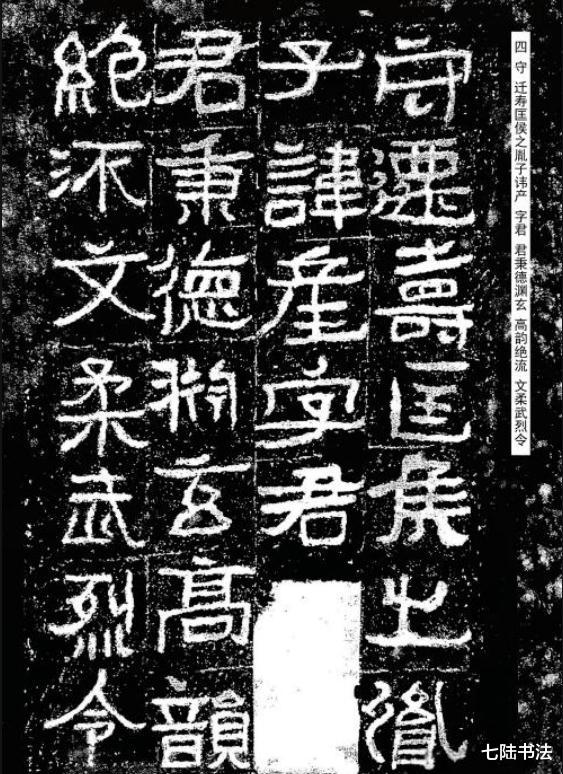 四 守 迁寿匡侯之胤子讳产 字君 君秉德渊玄 高韵绝流 文柔武烈令
守遷壽匡侯之胤
子諱産字君
君秉德渊玄髙韻
絶流文柔武烈令
七陆书法